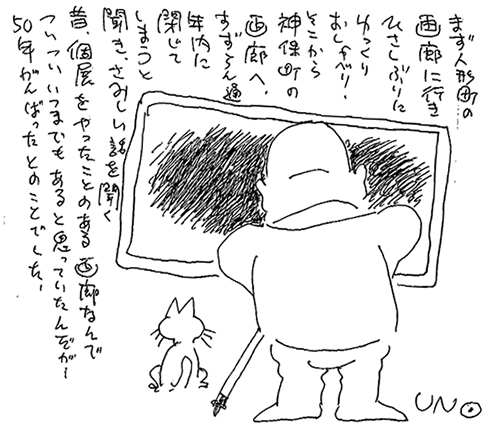 まず人形町の
画廊に行き
ひさしぶりに
ゆっくり
おしゃべり.
そこから
神保町の
画廊へ.
すずらん通
年内に
閉じて
しまうと
聞き、さみしい話を聞く
昔、個展をやったことのある画廊なんで
ついついいつまでもあると思っていたんだがー
50年がんばったとのことでしたー
UNO